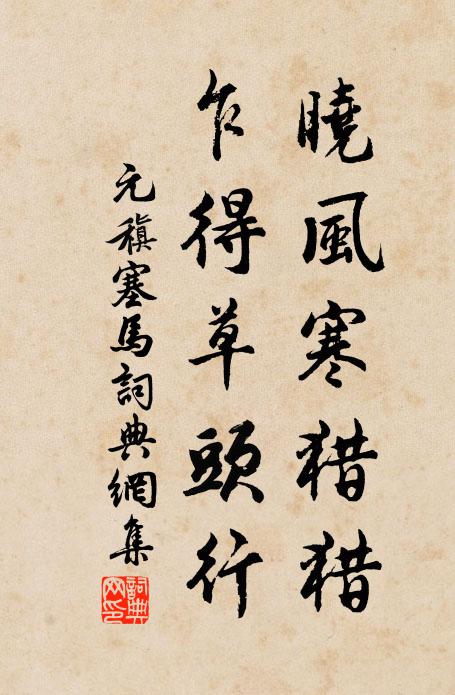 曉風寒猎猎
乍得草頭行
元稹塞馬詞典網集
詞典网印